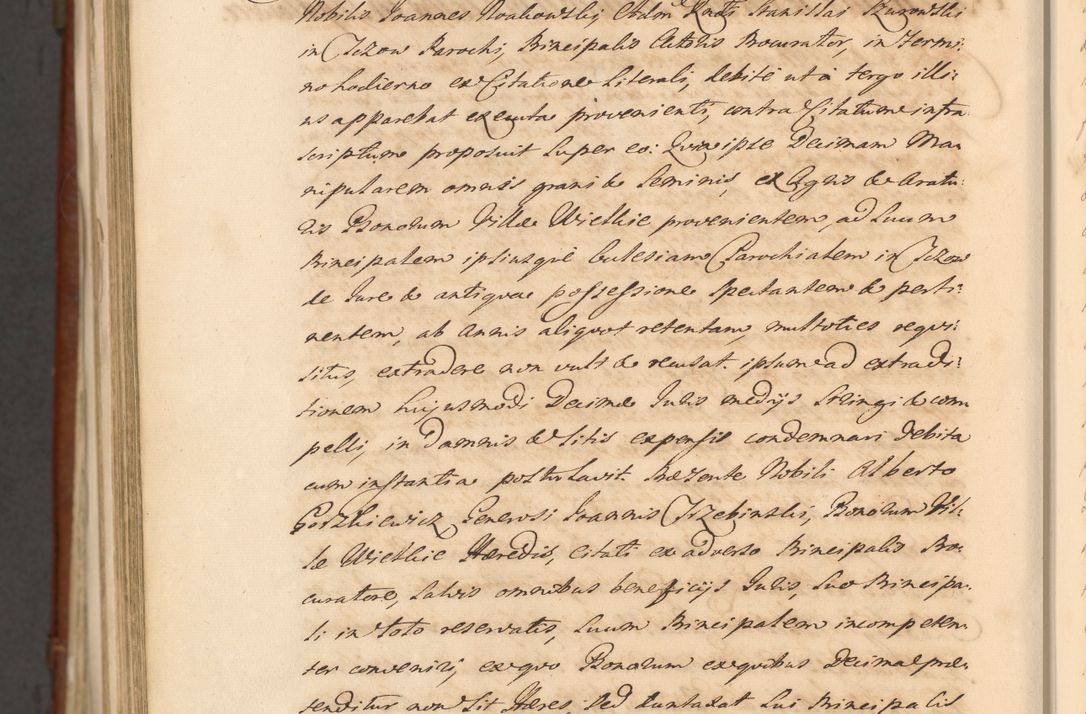 Nobilis Joannes Krakowski Adm Rndi Stanislai Szurowski
in Iczow Parochi, Principalis Actoris Procurator, in Termi:
no hodierno ex Citatione Literali, debite ut à tergo illi:
us apparebat executa provenienti, contra Citatum infra
scriptum proposuit super eo: Quia ipse Decimam Ma:
nipularem omnis grani & seminis, ex Agris & Aratu:
ris Bonorum Villæ Wielkie provenientem, ad suum
Principalem ipsiusque Ecclesiam Parochialem in Iczow
de Jure & antiqua possessione spectantem & perti:
nentem, ab Annis aliquot retentam, multoties requi:
situs, extradere non vult & recusat. ipsum ad extradi:
tionem hujusmodi Decimæ Juris medijs stringi & com
pelli, in Damnis & Litis expensis condemnari debita
cum instantia postulavit. Præsente Nobili Alberto
Gorzkiewicz Generosi Joannis Trzebinski, Bonorum Vil:
læ Wielkie Hæredis, Citati ex adverso Principalis Pro:
curatore, salvis omnibus beneficijs Juris, suo Principa:
li in toto reservatis, suum Principalem incompeten:
ter conveniri, ex quo Bonorum ex quibus Decima præ:
tenditur non sit Hæres, sed duntaxat sui Principalis